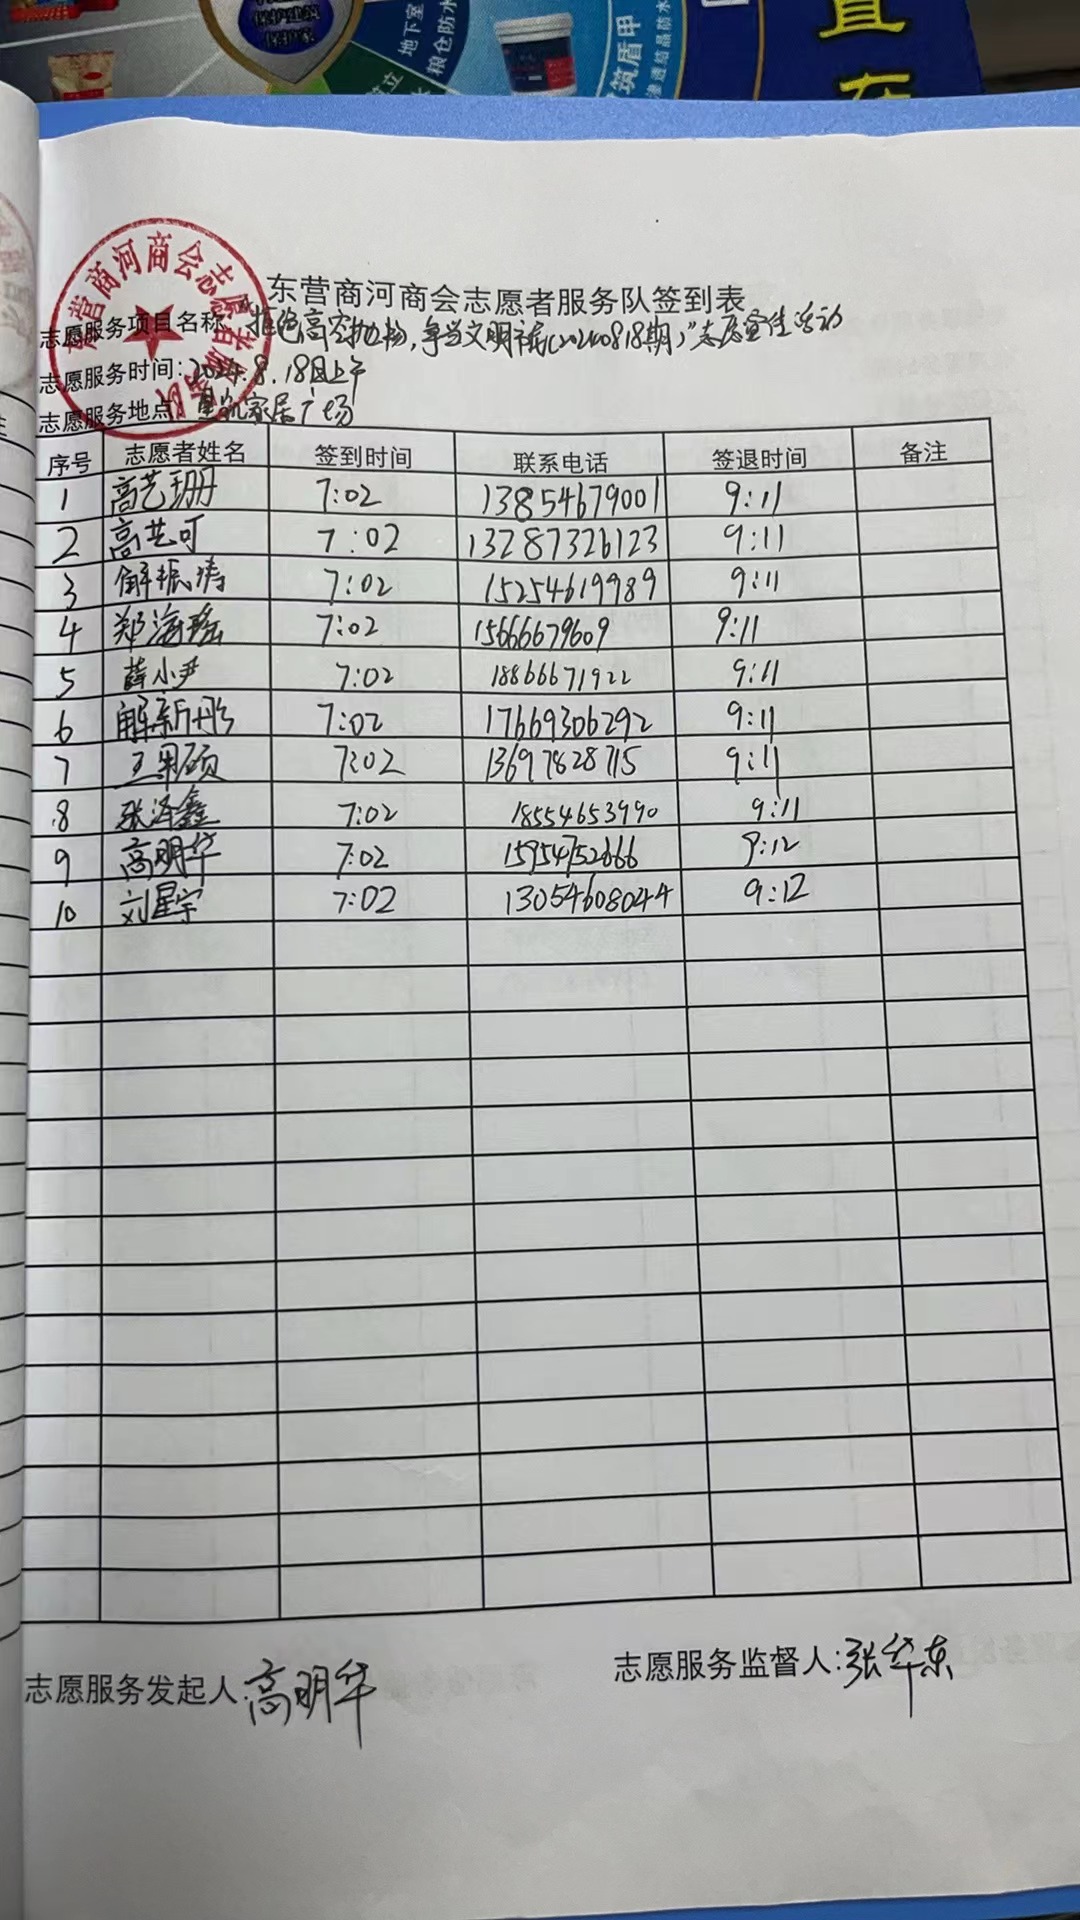 地下室
粮仓防水
筑盾甲
渗透结晶防水
直
在
东营商河商会志愿者服务队
东营商河商会志愿者服务队签到表
志愿服务项目名称:"拒绝高空抛物,争当文明市民(20240818期)"志愿宣传活动
志愿服务时间:2024.8.18日上午
志愿服务地点:星凯家居广场
序号 志愿者姓名 签到时间 联系电话 签退时间 备注
1 高艺珊 7:02 13854679001 9:11
2 高艺可 7:02 13287326123 9:11
3 解振涛 7:02 15254619989 9:11
4 郑海瑶 7:02 15666679609 9:11
5 薛小尹 7:02 18866671922 9:11
6 解新彤 7:02 17669306292 9:11
7 王果硕 7:02 13697828715 9:11
8 张泽鑫 7:02 18554653990 9:11
9 高明华 7:02 15954752666 9:12
10 刘星宇 7:02 13054608044 9:12
志愿服务发起人:高明华 志愿服务监督人:张华东